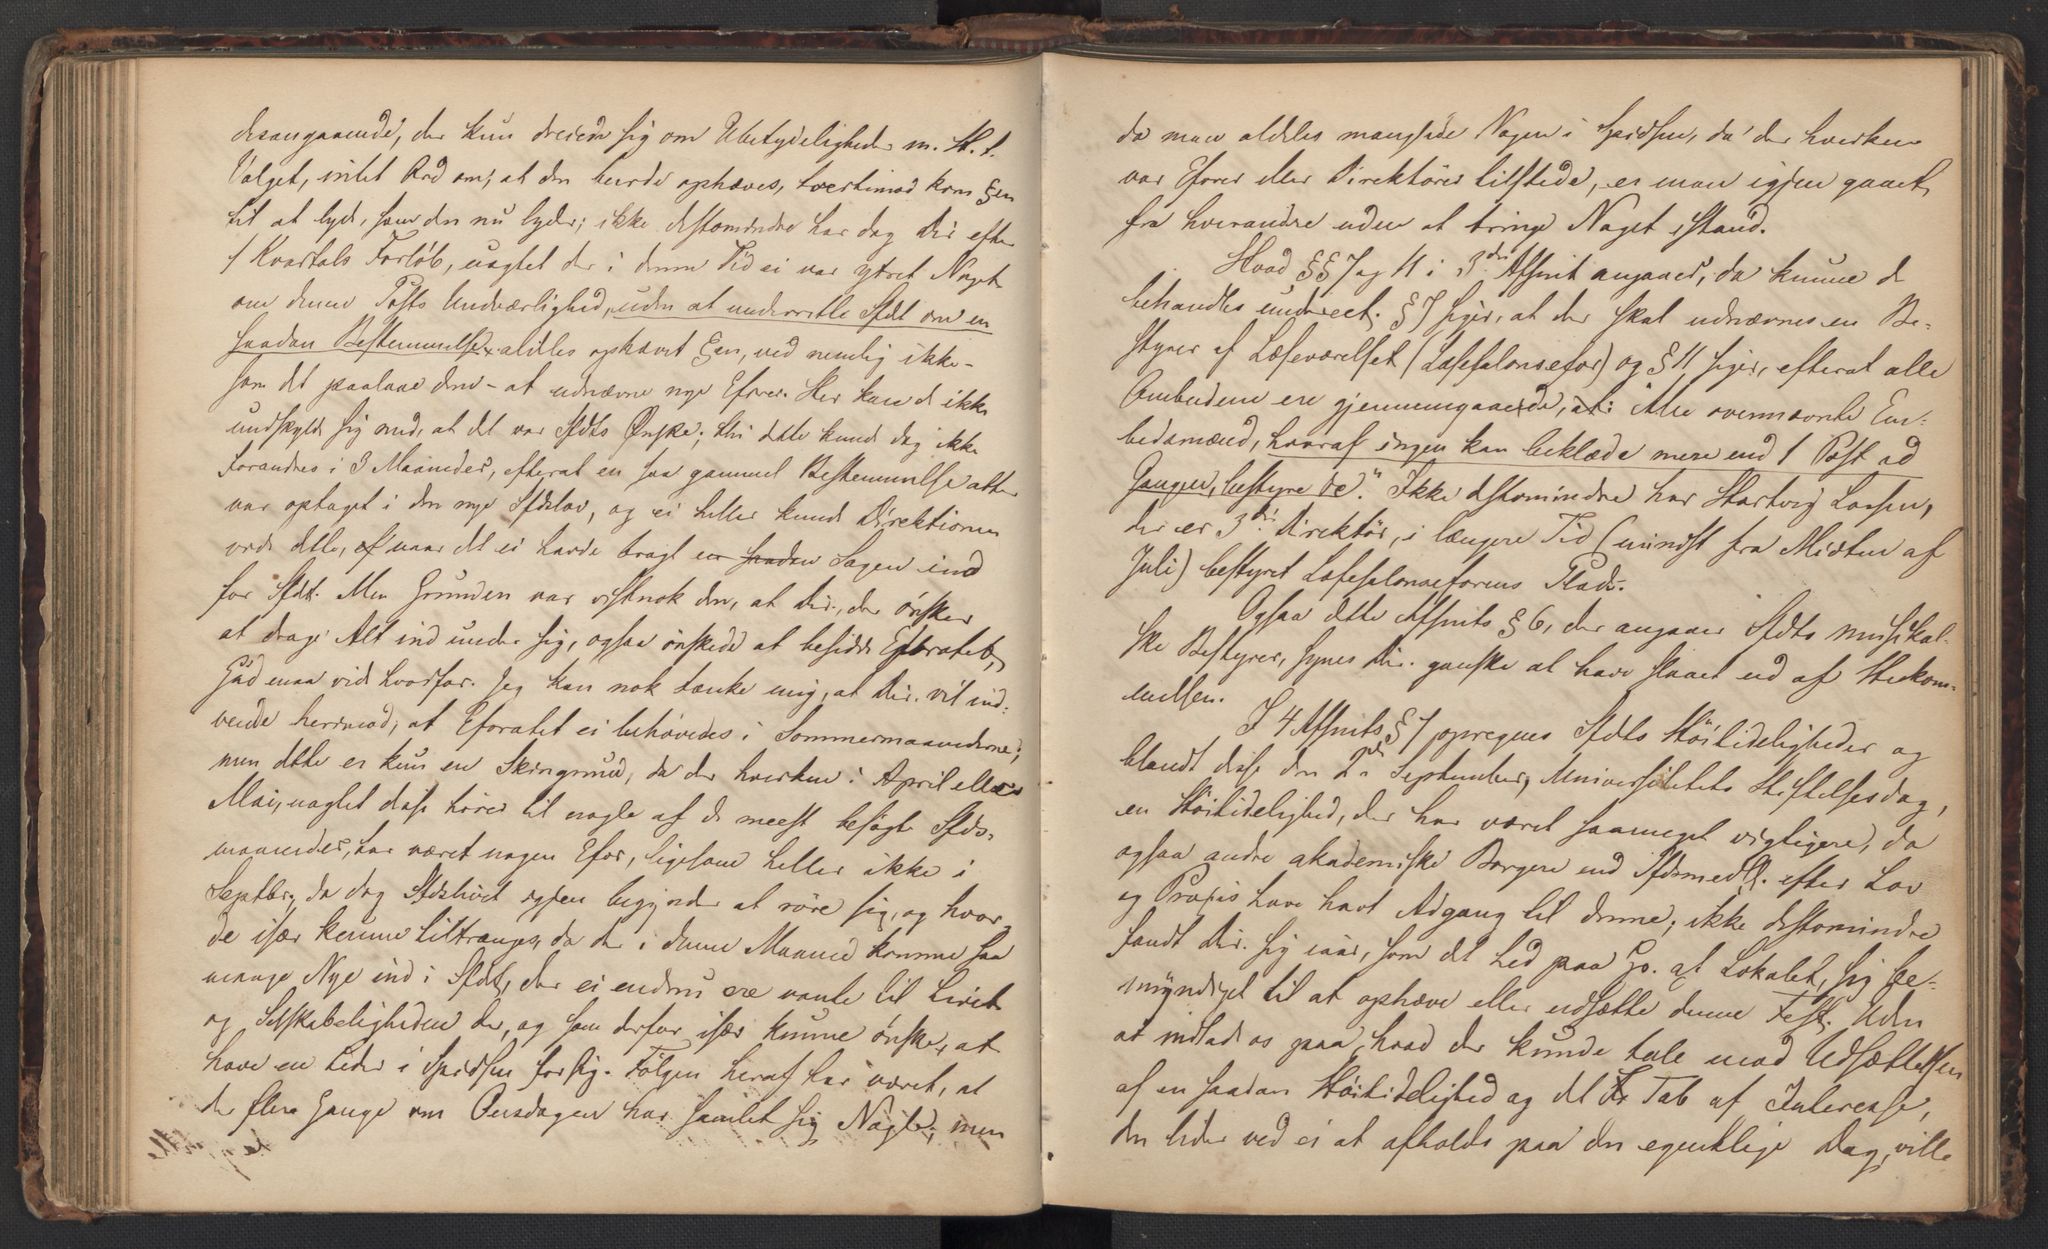 desangaaende, der kun dreiede sig om Ubetydeligheder m. H. t.
Valget, intet Ord om, at den burde ophæves, tvertimod kom §en
til at lyde, som den nu lyder; ikke destomindre har dog Dir. efter
1 Kvartals Forløb, uagtet der i denne Tid ei var ytret Noget
om denne Posts Undværlighed, uden at underrette Sfdt om en
saadan Bestemmelse, aldeles ophævet §en, ved nemlig ikke –
som det paalaae dem – at udnævne nye Eforer. Her kan de ikke
undskylde sig med, at det var Sfdts Ønske; thi dette kunde dog ikke
forandres i 3 Maaneder, efterat en saa gammel Bestemmelse atter
var optaget i den nye Sfdslov, og ei heller kunde Direktionen
vide dette, naar det ei havde bragt en saadan Sagen ind
for Sfdt. Men Grunden var vistnok den, at Dir., der ønsker
at drage Alt ind under sig, ogsaa ønskede at besidde Eforatet,
Gud maa vide hvorfor. Jeg kan nok tænke mig, at Dir. vil ind-
vende herimod, at Eforatet ei behøvedes i Sommermaanederne;
men dette er kun en Skingrund, da der hverken i April eller
Mai, uagtet disse hører til nogle af de meest besøgte Sfds-
maaneder, har været nogen Efor, ligesom heller ikke i
Septbr., da dog Sfdslivet igjen begynder at røre sig, og hvor
de især kunne tiltrænges, da der i denne Maaned komme saa
mange Nye ind i Sfdt, der ei endnu ere vante til Livet
og Selskabeligheden der, og som derfor især kunne ønske, at
have en Leder i Spidsen for sig. Følgen heraf har været, at
de flere Gange om Onsdagen har samlet sig Nogle, men
da man aldeles manglede Nogen i Spidsen, da der hverken
var Eforer eller Direktører tilstede, er man igjen gaaet
fra hverandre uden at bringe Noget istand.
Hvad §§ 7 og 11 i 3die Afsnit angaaer, da kunne de
behandles under eet. § 7 siger, at der skal udnævnes en Be-
styrer af Læseværelset (Læsesalonsefor) og § 11 siger, efterat alle
Ombudene ere gjennemgaaede, at: "Alle ovennævnte Em-
bedsmænd, hvoraf ingen kan beklæde mere end 1 Post ad
Gangen, bestyre de." Ikke destomindre har Hartvig Lassen,
der er 3die Direktør, i længere Tid (mindst fra Midten af
Juli) bestyret Læsesalonseforens Plads.
Ogsaa dette Afsnits § 6, der angaaer Sfdts musikal-
ske Bestyrer, synes Dir. ganske at have slaaet ud af Hukom-
melsen.
I 4 Afsnits § 1 opregnes Sfdts Høitideligheder og
blandt disse den 2den September, Universitetets Stiftelsesdag,
en Høitidelighed, der har været saameget vigtigere, da
ogsaa andre akademiske Borgere end Sfdsmedll. efter Lov
og Praxis have havt Adgang til denne; ikke destomindre
fandt Dir. sig iaar, som det hed paa Gr. af Lokalet, sig be-
myndiget til at ophæve eller udsætte denne Fest. Uden
at indlade os paa, hvad der kunde tale mod Udsættelsen
af en saadan Høitidelighed og det Tab af Interesse,
den lider ved ei at afholdes paa den egentlige Dag, ville